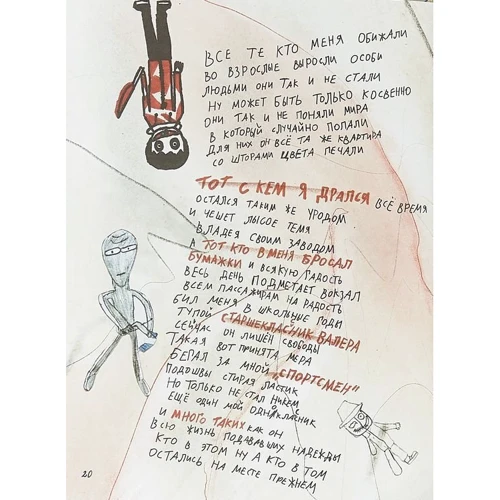 ВСЕ ТЕ КТО МЕНЯ ОБИЖАЛИ
ВО ВЗРОСЛЫЕ ВЫРОСЛИ ОСОБИ
ЛЮДЬМИ ОНИ ТАК И НЕ СТАЛИ
НУ МОЖЕТ БЫТЬ ТОЛЬКО КОСВЕННО
ОНИ ТАК И НЕ ПОНЯЛИ МИРА
В КОТОРЫЙ СЛУЧАЙНО ПОПАЛИ
ДЛЯ НИХ ОН ВСЁ ТА ЖЕ КВАРТИРА
СО ШТОРАМИ ЦВЕТА ПЕЧАЛИ
ТОТ С КЕМ Я ДРАЛСЯ ВСЁ ВРЕМЯ
ОСТАЛСЯ ТАКИМ ЖЕ УРОДОМ
И ЧЕШЕТ ЛЫСОЕ ТЕМЯ
ВЛАДЕЯ СВОИМ ЗАВОДОМ
А ТОТ КТО В МЕНЯ БРОСАЛ
БУМАЖКИ И ВСЯКУЮ ГАДОСТЬ
ВЕСЬ ДЕНЬ ПОДМЕТАЕТ ВОКЗАЛ
ВСЕМ ПАССАЖИРАМ НА РАДОСТЬ
БИЛ МЕНЯ В ШКОЛЬНЫЕ ГОДЫ
ТУПОЙ СТАРШЕКЛАСНИК ВАЛЕРА
СЕЙЧАС ОН ЛИШЁН СВОБОДЫ
ТАКАЯ ВОТ ПРИНЯТА МЕРА
БЕГАЛ ЗА МНОЙ „СПОРТСМЕН"
ПОДОШВЫ СТИРАЯ ЛАСТИК
НО ТОЛЬКО НЕ СТАЛ НИКЕМ
ЕЩЁ ОДИН МОЙ ОДНОКЛАСНИК
И МНОГО ТАКИХ КАК ОН
ВСЮ ЖИЗНЬ ПОДАВАВШИХ НАДЕЖДЫ
КТО В ЭТОМ НУ А КТО В ТОМ
ОСТАЛИСЬ НА МЕСТЕ ПРЕЖНЕМ
20